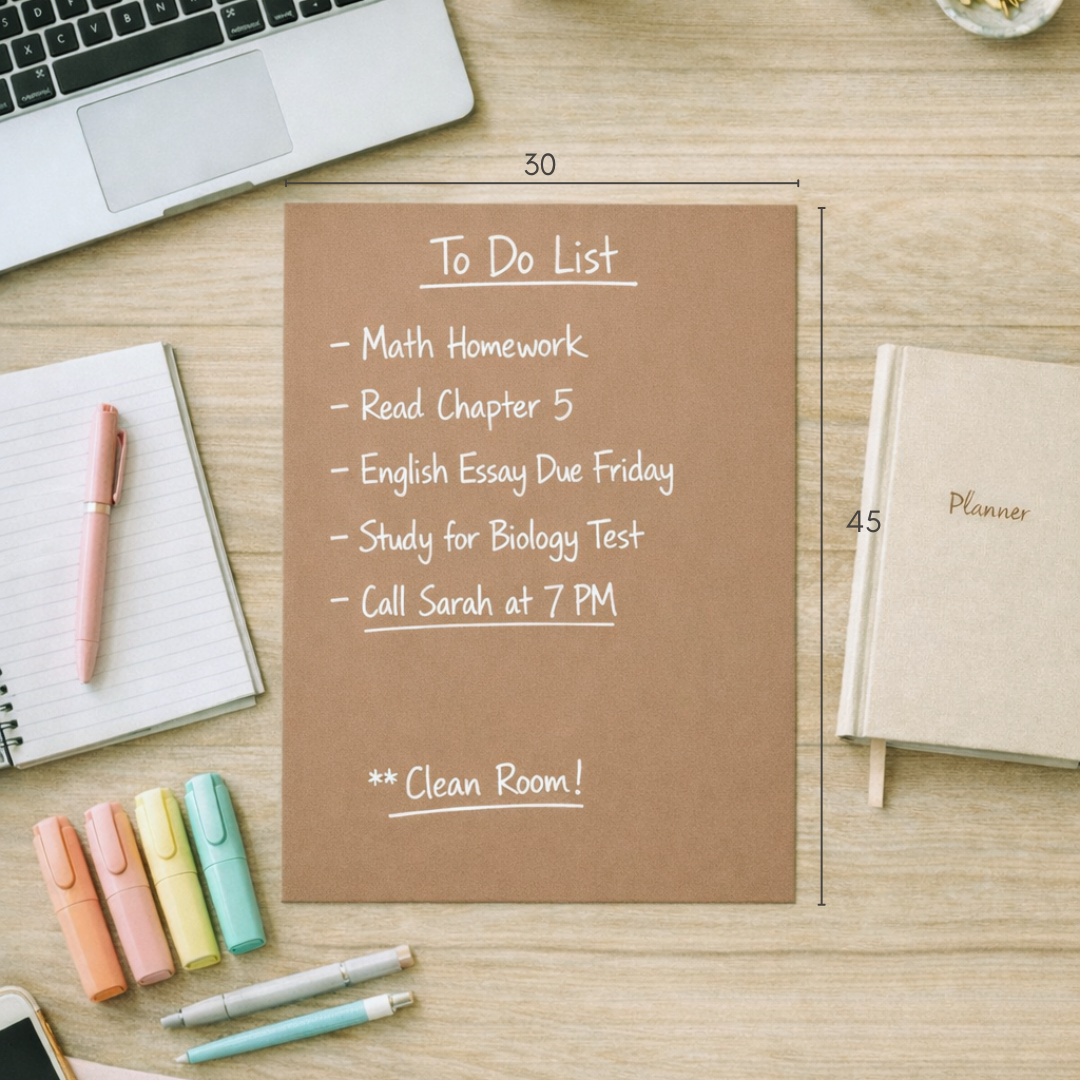 30
To Do List
- Math Homework
- Read Chapter 5
- English Essay Due Friday
- Study for Biology Test
- Call Sarah at 7 PM
** Clean Room!
45
Planner
S D F G H J K L
X C V B N M